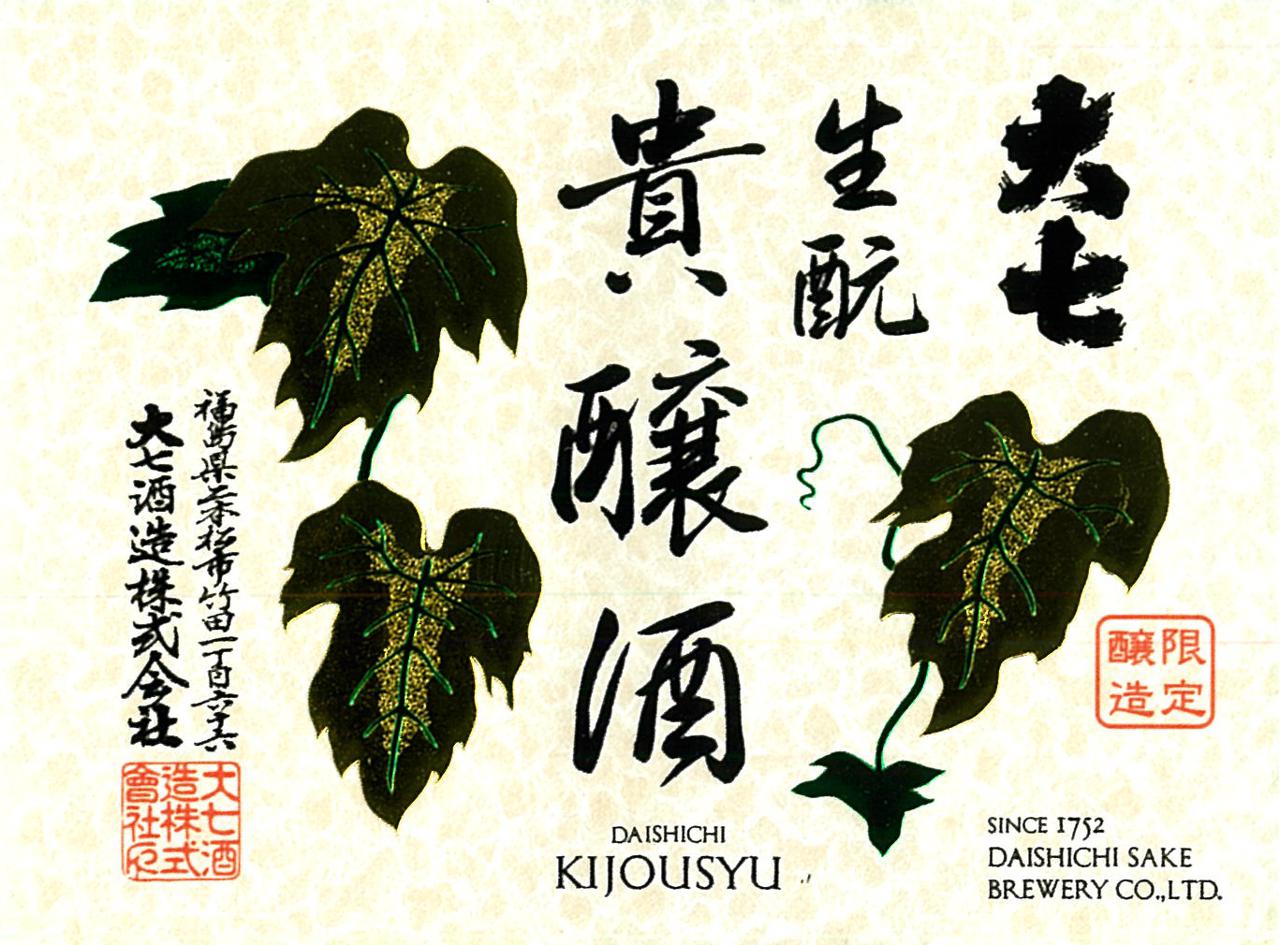 大七
生酛
貴醸酒
限定
醸造
福島県二本松市竹田一丁目六十六
大七酒造株式会社
大七酒
造株式
會社印
DAISHICHI
KIJOUSYU
SINCE 1752
DAISHICHI SAKE
BREWERY CO.,LTD.